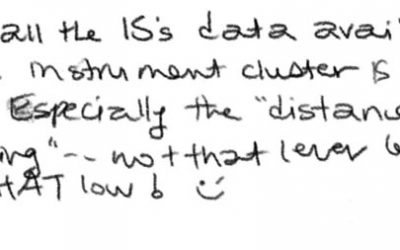 all the IS's data avai
instrument cluster is
Especially the "distance
ing" -- not that I ever
HAT low! ☺